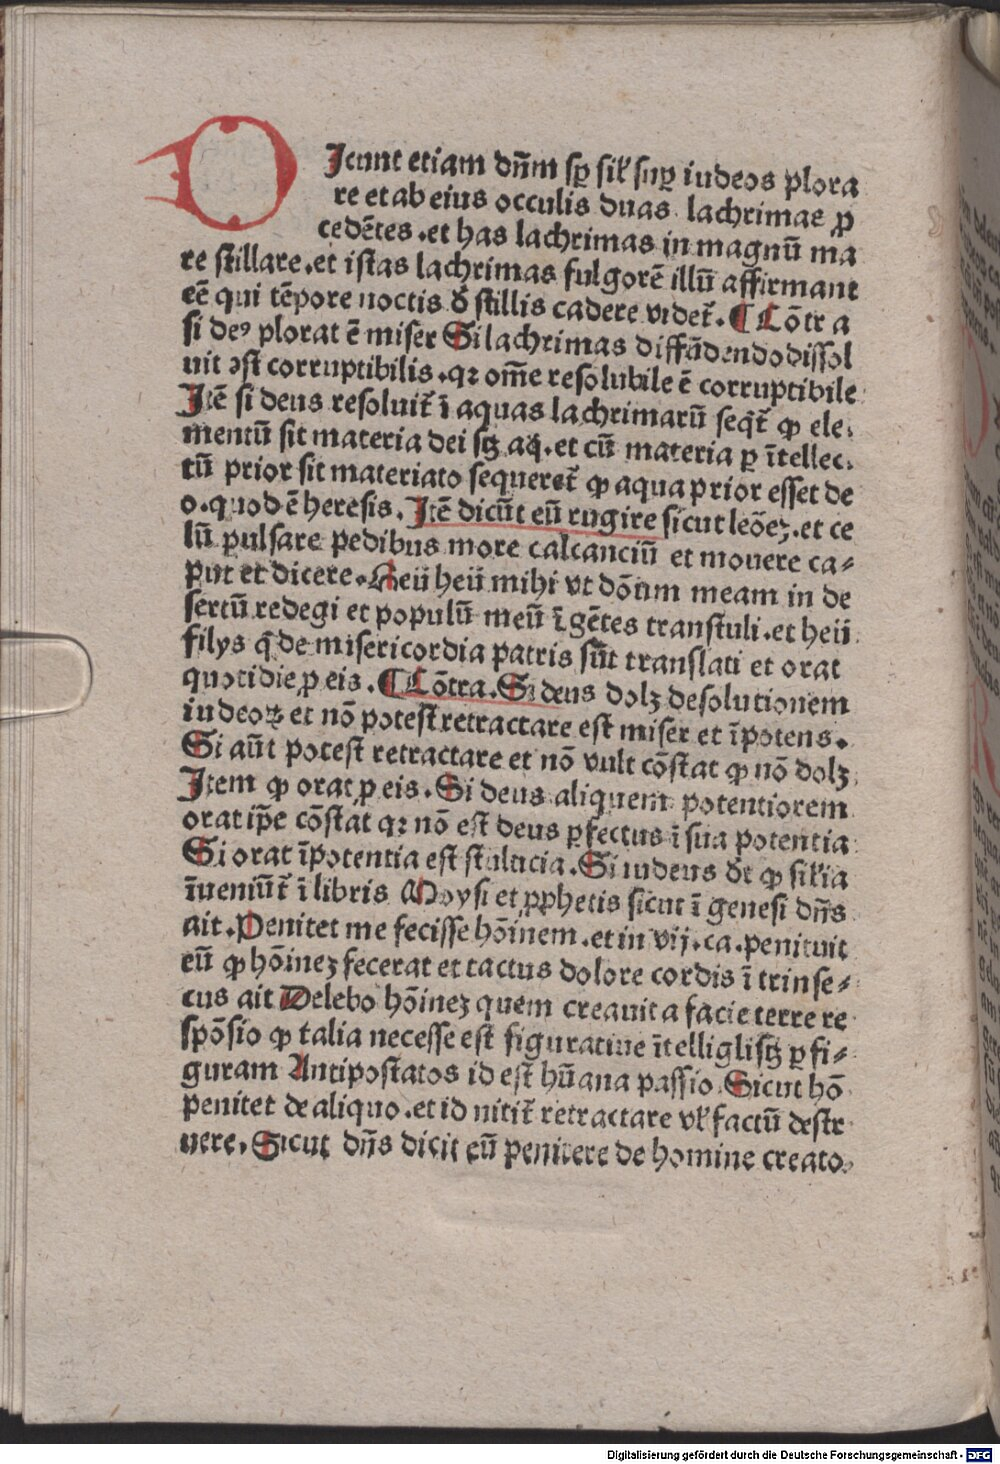 DIcunt etiam dn̄m sꝑ sil̓ suꝑ iudeos plora
re et ab eius occulis duas lachrimas ꝓ
cedētes .et has lachrimas in magnū ma
re stillare .et istas lachrimas fulgorē illū affirmant
eē qui tēpore noctis đ stillis cadere videt̄. ¶ Cōtra
si deꝰ plorat ē miser Si lachrimas diffūdendo dissol
uit ꝯst corruptibilis .qꝛ om̄e resolubile ē corruptibile
Itē si deus resoluit̄ ī aquas lachrimarū seqt̄ ꝙ ele⸗
mentū sit materia dei sꝫ aq̄. et cū materia ꝑ ītellec⸗
tū prior sit materiato sequeret̄ ꝙ aqua prior esset de
o. quod ē heresis. Itē dicūt eū rugire sicut leōeꝫ. et ce
lū pulsare pedibus more calcanciū et mouere ca⸗
put et dicere. Heu heu mihi vt dōum meam in de
sertū redegi et populū meū ī gētes transtuli .et heu
filys q̄ de misericordia patris sūt translati et orat
quotidie ꝓ eis. ¶ Cōtra. Si deus dolꝫ desolutionem
iudeoꝝ et nō potest retractare est miser et īpotens.
Si aūt potest retractare et nō vult cōstat ꝙ nō dolꝫ
Item ꝙ orat ꝓ eis. Si deus aliquem potentiorem
orat ip̄e cōstat qꝛ nō est deus ꝑfectus ī sua potentia
Si orat īpotentia est stulticia. Si iudeus dt̄ ꝙ sil̓ia
īueniūt̄ ī libris Moysi et ꝓphetis sicut ī genesi dn̄s
ait. Penitet me fecisse hōīnem .et in vij. ca. penituit
eū ꝙ hōineꝫ fecerat et tactus dolore cordis ī trinse⸗
cus ait Delebo hōineꝫ quem creaui a facie terre re
spōsio ꝙ talia necesse est figuratiue ītelligi sꝫ ꝑ fi⸗
guram Antipostatos id est hūana passio Sicut hō
penitet de aliquo .et id nitit̄ retractare vl̓ factū destr
uere. Sicut dn̄s dicit eū penitere de homine creato.
Digitalisierung gefördert durch die Deutsche Forschungsgemeinschaft - DFG